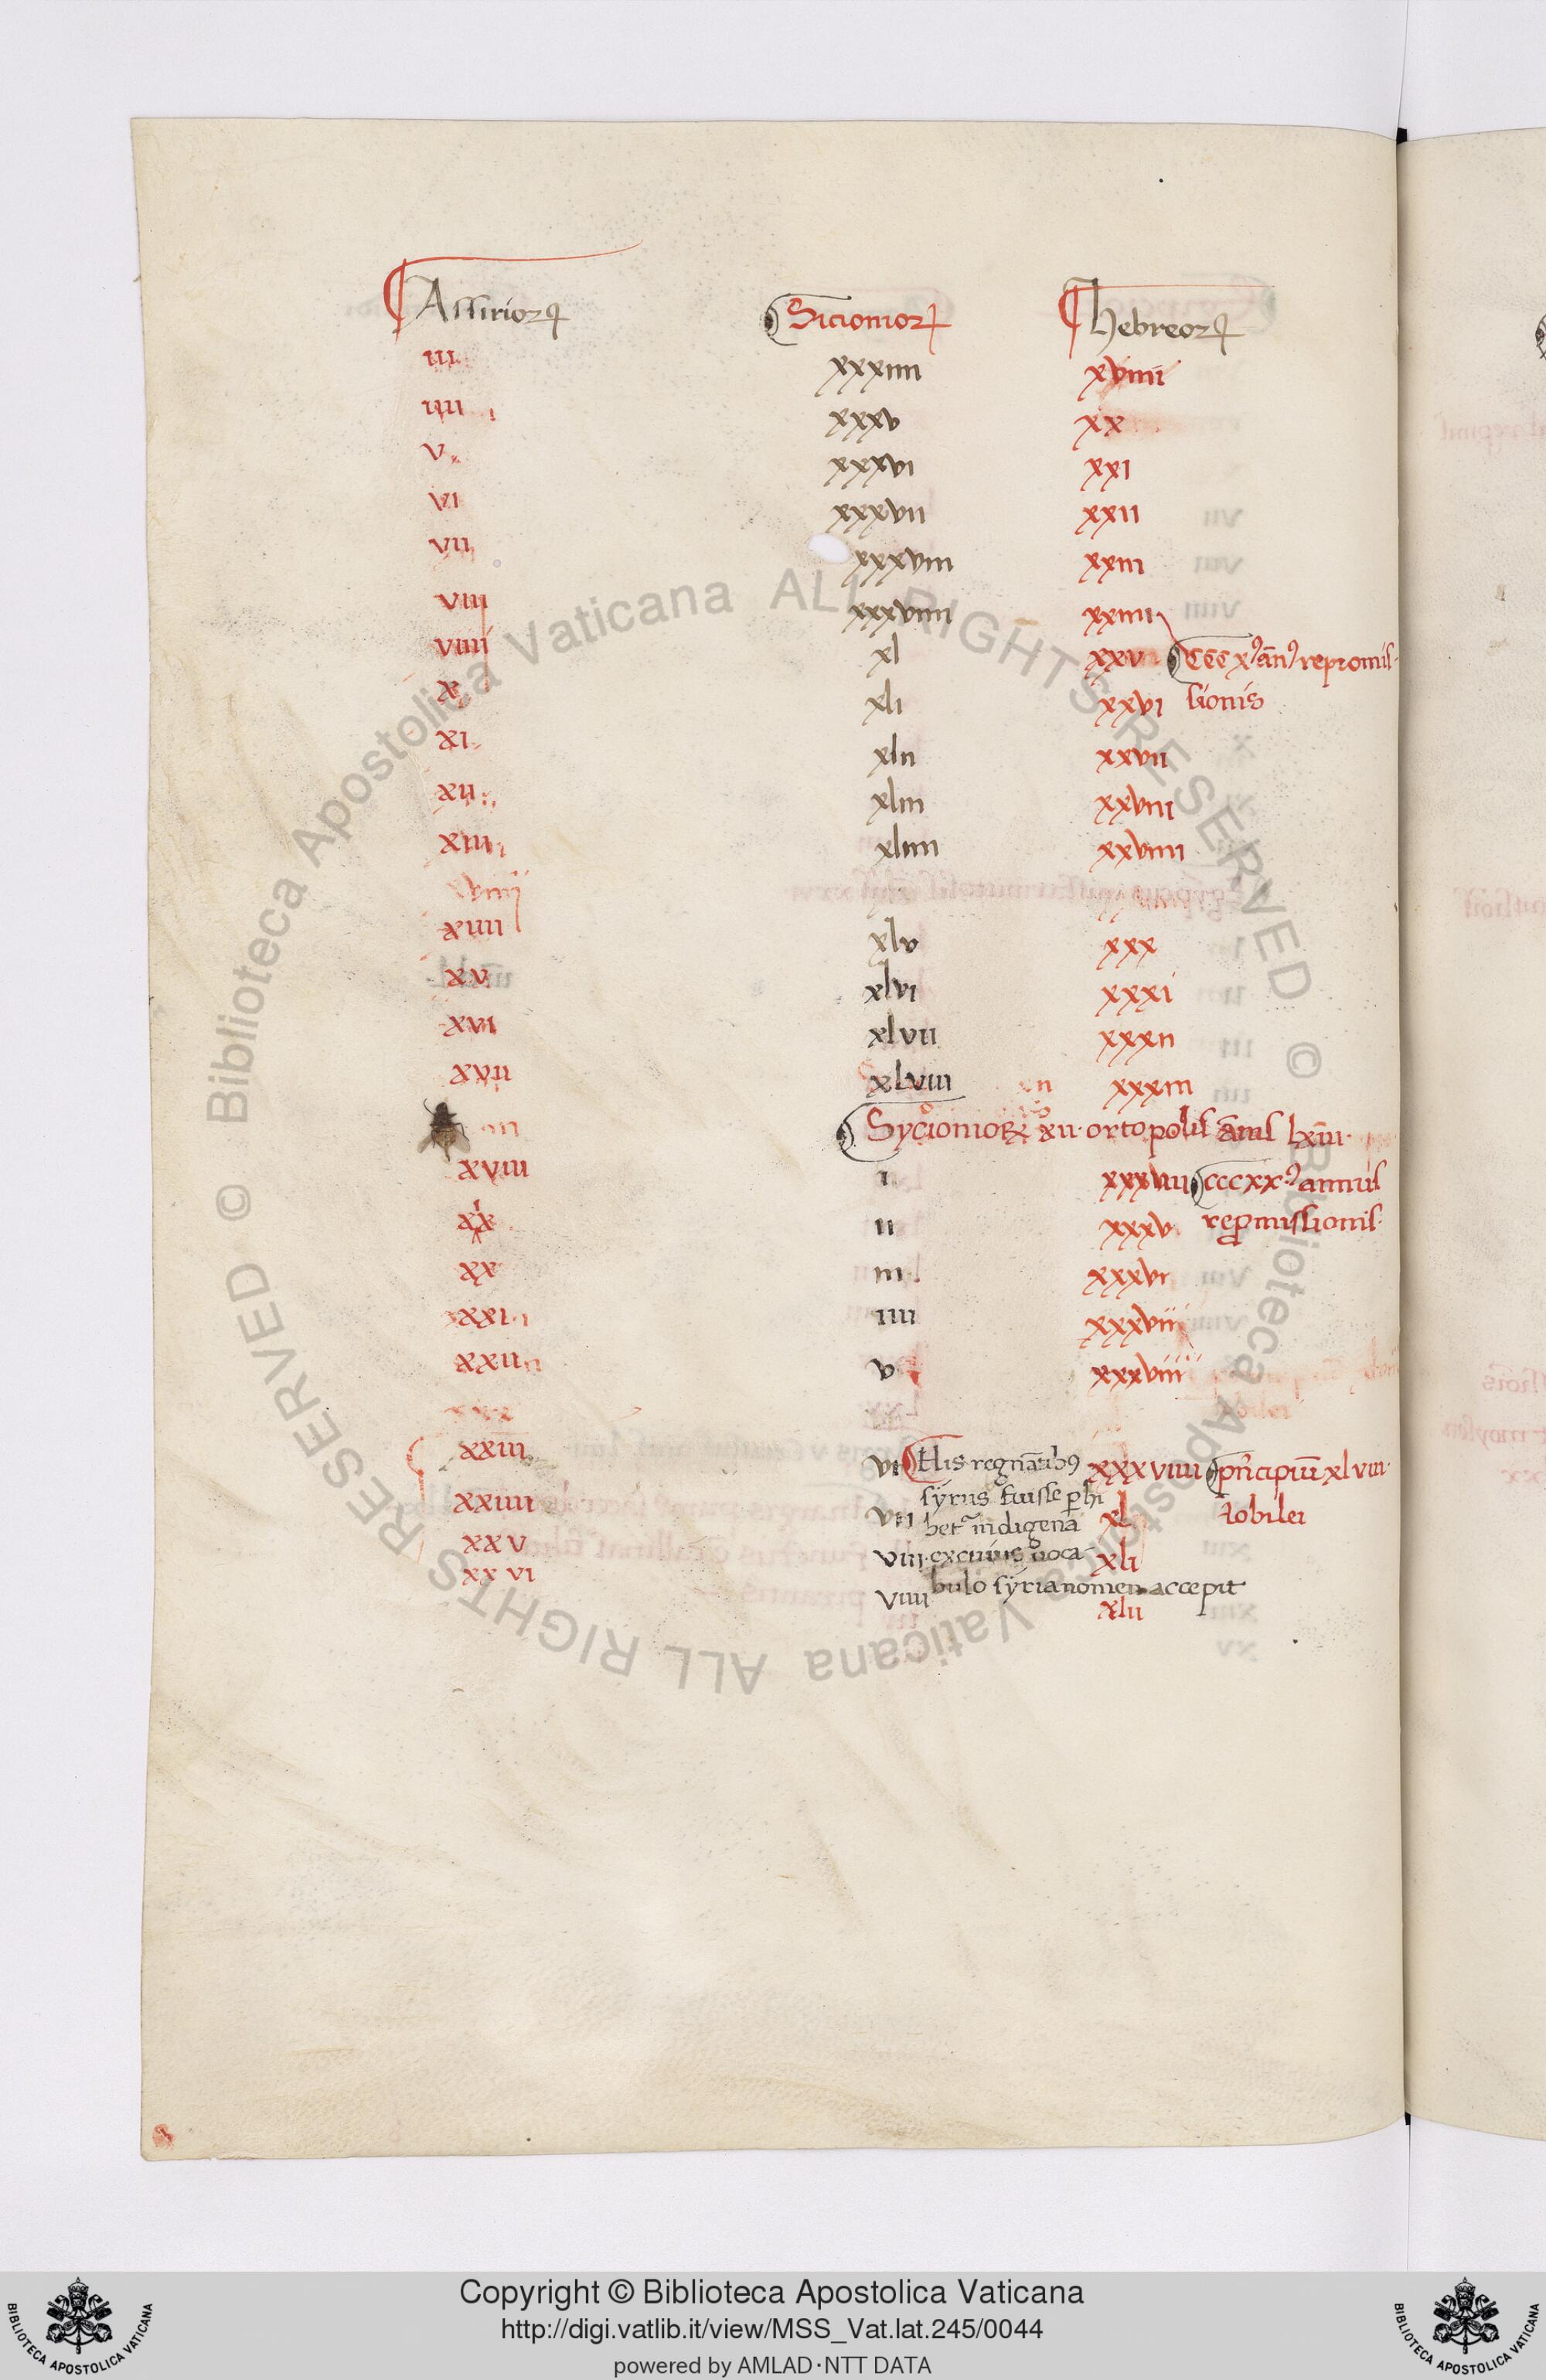 Assirioꝝ Sicionioꝝ hebreoꝝ
iii xxxiiii xviiii
iiii xxxv xx
v xxxvi xxi
vi xxxvii xxii
vii xxxviii xxiii
viii xxxviiii xxiiii
viiii xl xxv CCC xꝰ ānꝰ repromis-
x xli xxvi sionis
xi xlii xxvii
xii xliii xxviii
xiii xliiii xxviiii
xiiii xlv xxx
xv xlvi xxxi
xvi xlvii xxxii
xvii xlviii xxxiii
Sycionioꝝ xii ortopolis annis lxiii
xviii i xxxiiii cccxxꝰ annus
xix ii xxxv rep̱missionis
xx iii xxxvi
xxi iiii xxxvii
xxii v xxxviii
xxiii vi His regnātibꝰ xxxviiii pͥncipiū xlviii
syrus fuisse perhi
xxiiii vii betͬ indigena xl iobilei
xxv viii ex cuius uoca- xli
xxvi viiii bulo syria nomen accepit
xlii
© Biblioteca Apostolica Vaticana ALL RIGHTS RESERVED © Biblioteca Apostolica Vaticana ALL RIGHTS RESERVED
Copyright © Biblioteca Apostolica Vaticana
http://digi.vatlib.it/view/MSS_Vat.lat.245/0044
powered by AMLAD·NTT DATA
BIBLIOTECA APOSTOLICA VATICANA
BIBLIOTECA APOSTOLICA VATICANA